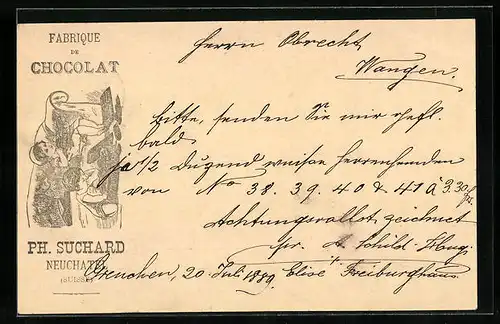 FABRIQUE
DE
CHOCOLAT
PH. SUCHARD
NEUCHATEL
(SUISSE)
Herrn Obrecht
Wangen.
Bitte, senden Sie mir
bald
je 1/2 Duzend weisse Herrenhemden
von No 38. 39. 40 & 41 à 3.30
Achtungsvollst zeichnet
pr. A. Schild-Hugi
Grenchen, 20. Juli 1889. Elise Freiburghaus.